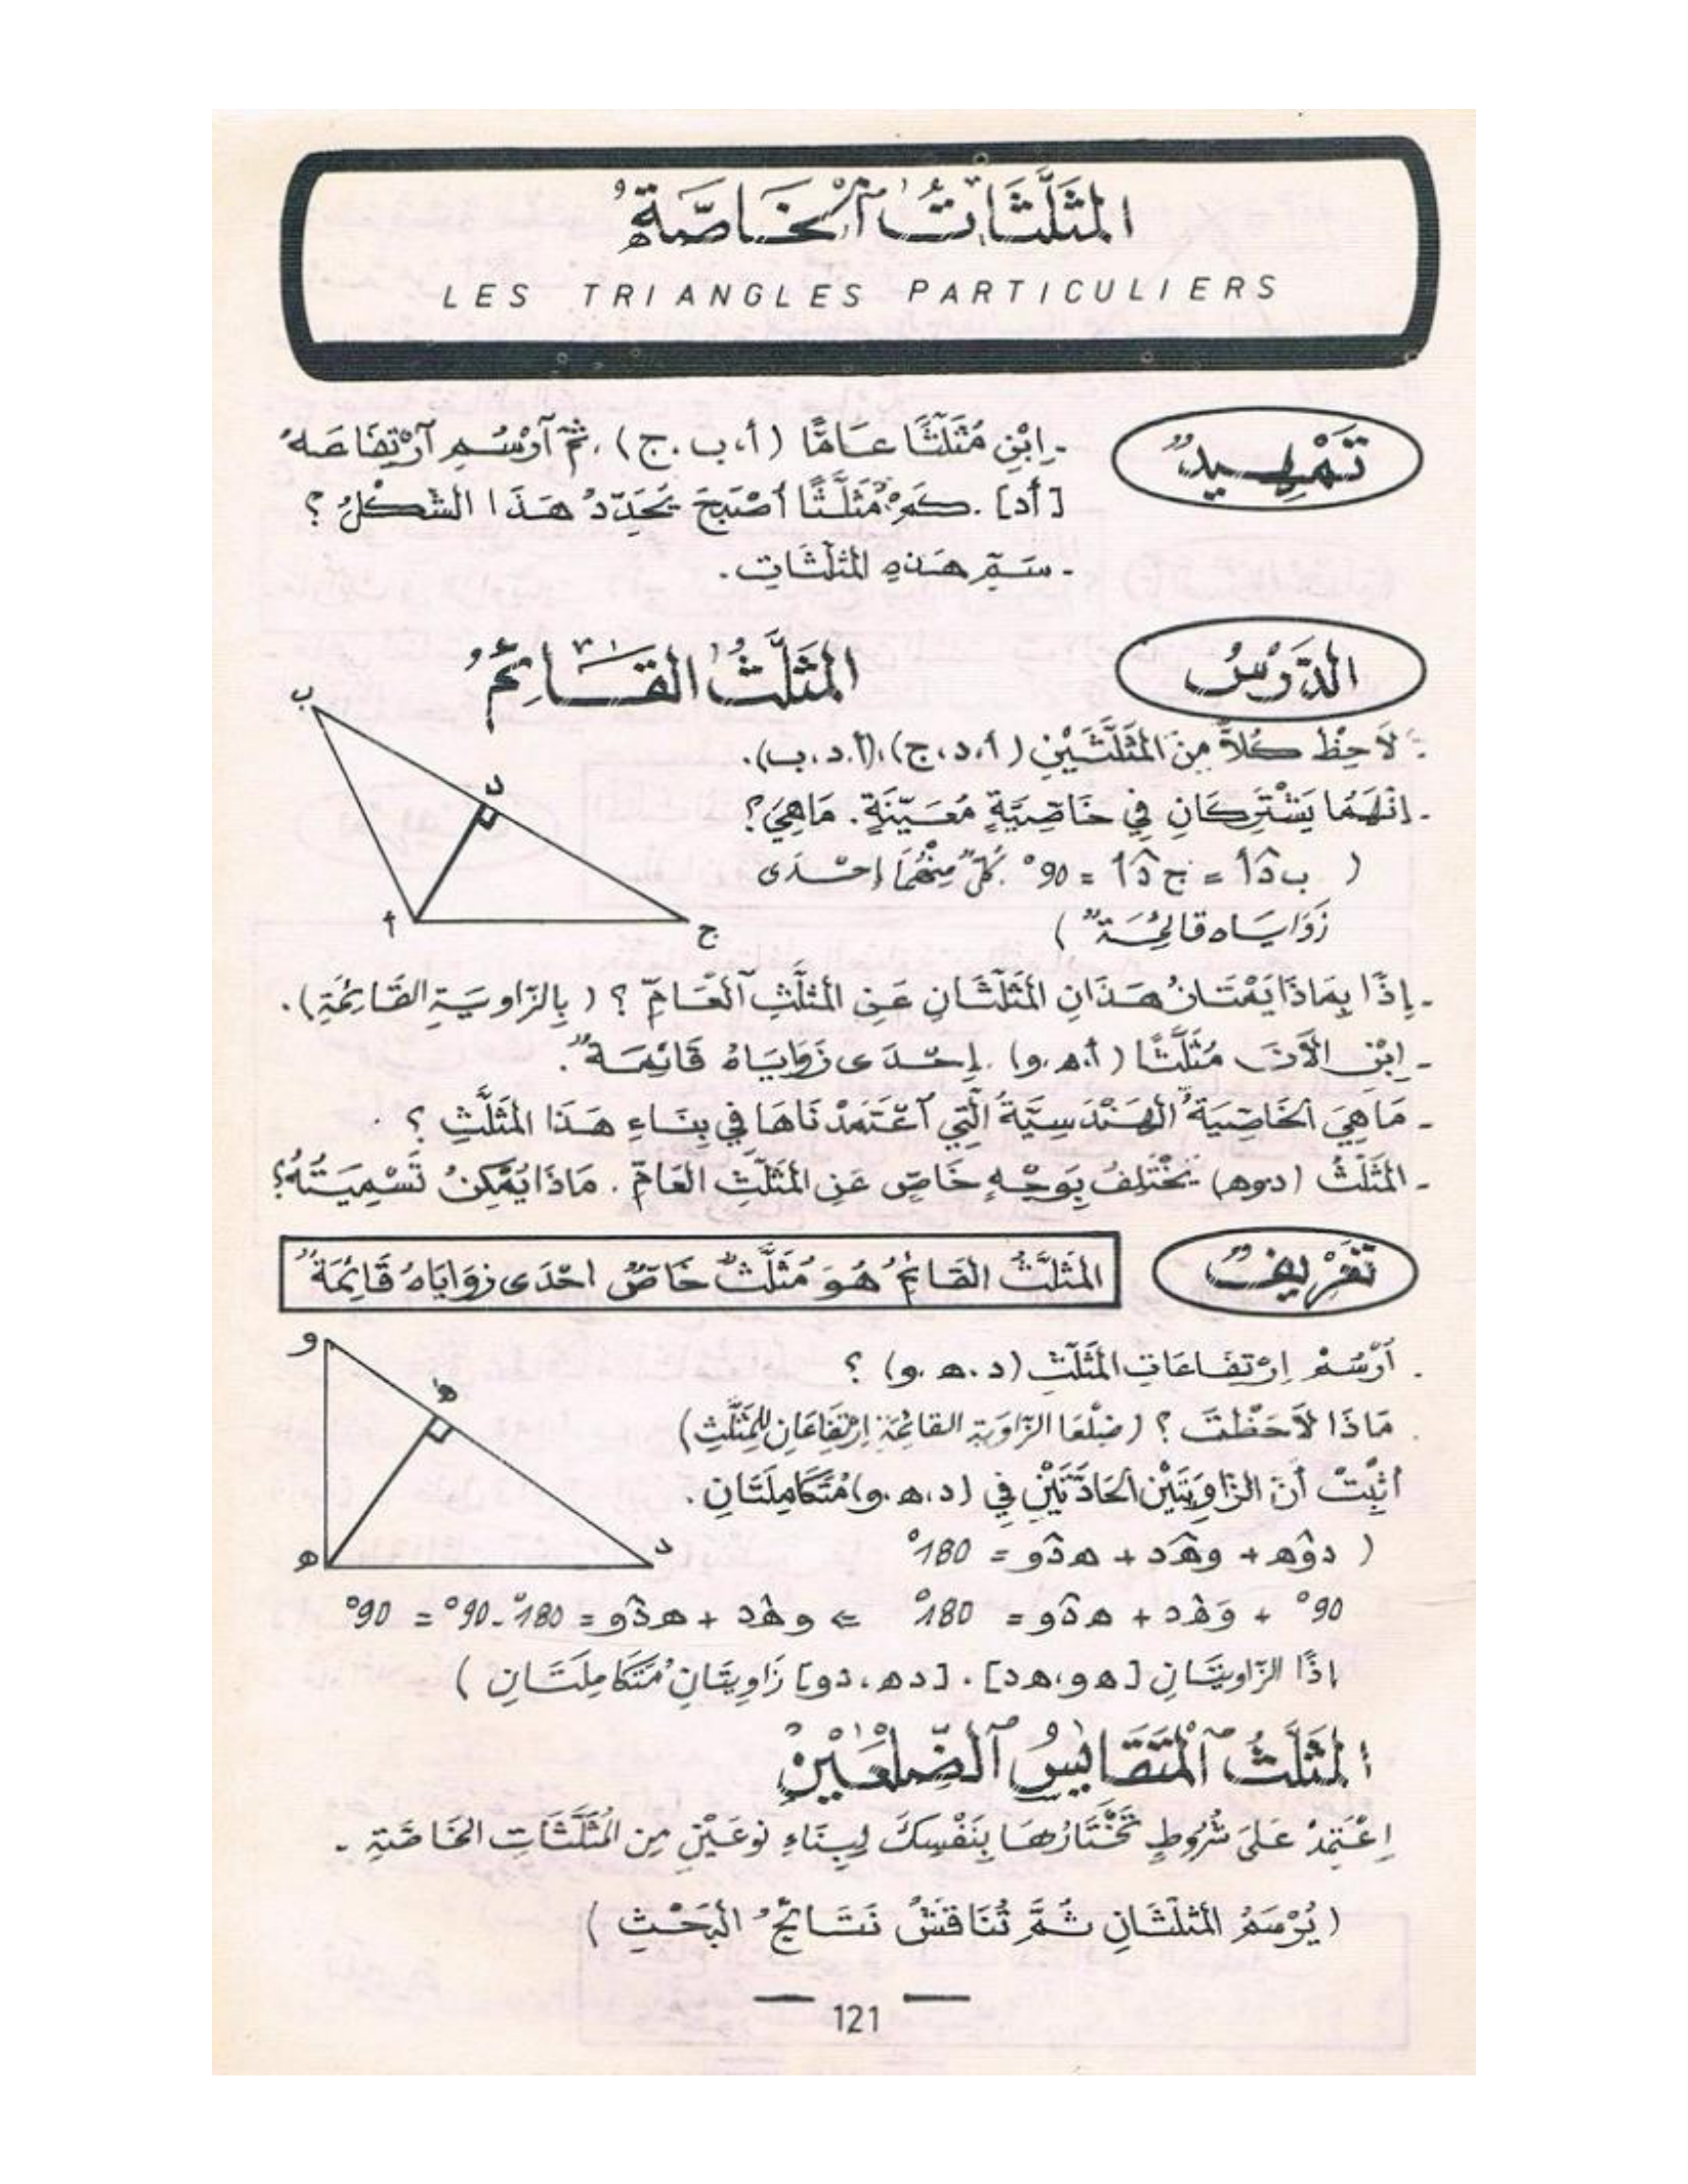 المثَلَّثَاتُ ٱلْخَاصَّةُ
LES TRIANGLES PARTICULIERS
تَمْهِيدٌ
- اِبْنِ مُثَلَّثًا عَامًّا (أ، ب. ج). ثُمَّ ٱرْسُمِ ٱرْتِفَاعَهُ
[أد]. كَمْ مُثَلَّثًا أَصْبَحَ يُحَدِّدُ هَذَا الشَّكْلُ؟
- سَمِّ هَذِهِ المثَلَّثَاتِ.
الدَّرْسُ
المثَلَّثُ القَائِمُ
لاَحِظْ كُلاًّ مِنَ المثَلَّثَيْنِ (أ، د، ج)، (أ. د، ب).
- إِنَّهُمَا يَشْتَرِكَانِ فِي خَاصِّيَّةٍ مُعَيَّنَةٍ. مَاهِيَ؟
( ب د̂ أ = ج د̂ أ = 90° كُلٌّ مِنْهُمَا إِحْدَى
زَوَايَاه قَائِمَةٌ )
- إِذًا بِمَاذَا يَمْتَازُ هَذَانِ المثَلَّثَانِ عَنِ المثَلَّثِ ٱلْعَامِّ؟ ( بِالزَّاوِيَةِ القَائِمَةِ).
- اِبْنِ الآنَ مُثَلَّثًا (أ. ه. و). إِحْدَى زَوَايَاهُ قَائِمَةٌ.
- مَا هِيَ الخَاصِّيَةُ الهَنْدَسِيَّةُ الَّتِي ٱعْتَمَدْنَاهَا فِي بِنَاءِ هَذَا المثَلَّثِ؟
- المثَلَّثُ (د. و. ه) يَخْتَلِفُ بِوَجْهٍ خَاصٍّ عَنِ المثَلَّثِ العَامِّ. مَاذَا يُمْكِنُ تَسْمِيَتُهُ؟
تَعْرِيفٌ
المثَلَّثُ القَائِمُ هُوَ مُثَلَّثٌ خَاصٌّ احْدَى زوَايَاهُ قَائِمَةٌ
. أُرْسُمْ اِرْتِفَاعَاتِ المثَلَّثِ (د. ه. و) ؟
. مَاذَا لاَحَظْتَ؟ (ضِلْعَا الزَّاوِيَةِ القائِمَةِ اِرْتِفَاعَانِ لِلْمُثَلَّثِ)
أَثْبِتْ أَنَّ الزَّاوِيَتَيْنِ الحَادَّتَيْنِ فِي (د، ه. و) مُتَكَامِلَتَانِ.
( د و̂ ه + و ه̂ د + ه د̂ و = 180°
90° + و ه̂ د + ه د̂ و = 180° ⇐ و ه̂ د + ه د̂ و = 180° - 90° = 90°
إذًا الزَّاوِيتَانِ [ه و، ه د]. [د ه، د و] زَاوِيتَانِ مُتَكَامِلَتَانِ )
المثَلَّثُ ٱلْمُتَقَايِسُ ٱلضِّلْعَيْنِ
اِعْتَمِدْ عَلَى شُرُوطٍ تَخْتَارُهَا بِنَفْسِكَ لِبِنَاءِ نَوعَيْنِ مِن المُثَلَّثَاتِ الخَاصَّةِ -
( يُرْسَمُ المثَلَّثَانِ ثُمَّ تُنَاقَشُ نَتَائِجُ البَحْثِ )
121